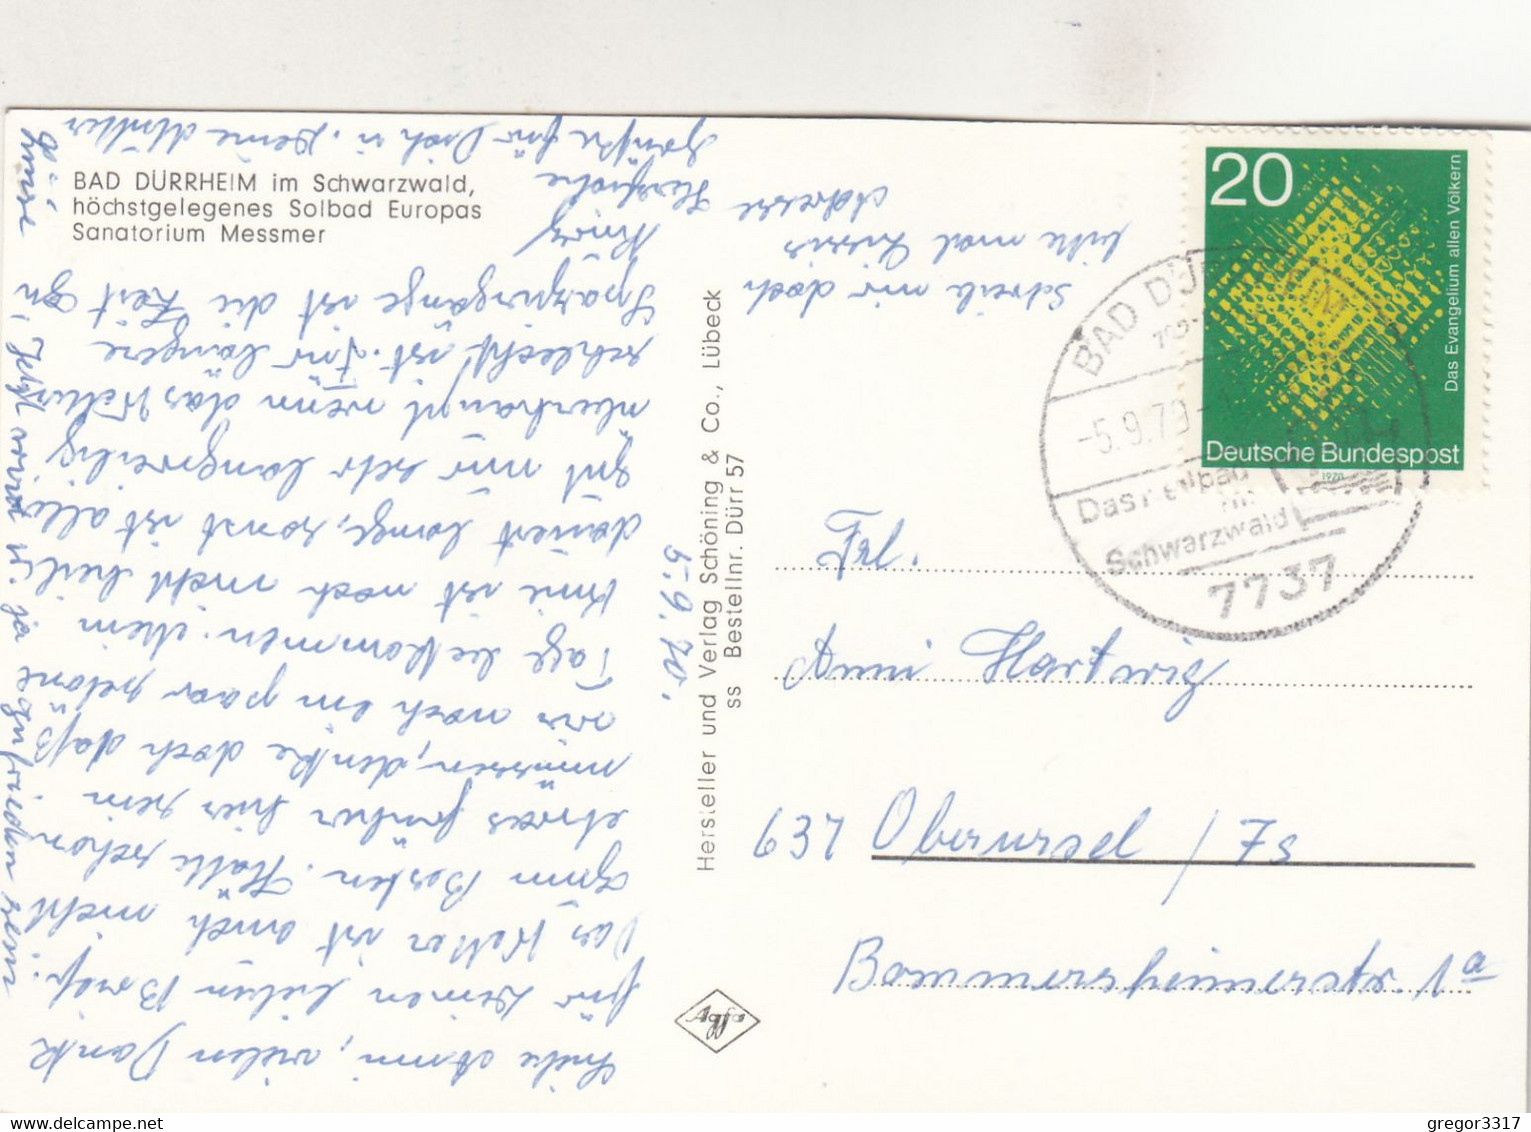 BAD DÜRRHEIM im Schwarzwald,
höchstgelegenes Solbad Europas
Sanatorium Messmer
Liebe Anni, vielen Dank
für Deinen lieben Brief.
Das Wetter ist auch nicht
zum Besten. Hätte schon
etwas früher hier sein
müssen, denke doch daß
wir noch ein paar schöne
Tage bekommen. Mein
Knie ist noch nicht heil,
dauert lange, sonst ist alles
gut nur sehr langweilig
überhaupt wenn das Wetter
schlecht ist. Für längere
Spaziergänge ist die Zeit zu
kurz
Herzliche
Grüße für Dich u. Deine Mutter
Schreib mir doch
bitte mal
Adresse
5.9.70.
Hersteller und Verlag Schöning & Co., Lübeck
ss Bestellnr. Dürr 57
Agfa
20
Das Evangelium allen Völkern
Deutsche Bundespost
1970
BAD DÜR
-5.9.70-1
Das Heilbad
im
Schwarzwald
7737
Frl.
Anni Hartwig
637 Oberursel / Ts
Bommersheimerstr. 1a
gregor3317